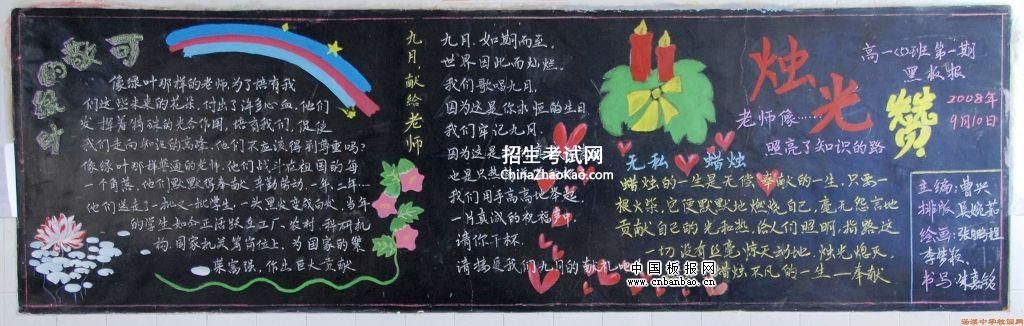 可敬的绿叶
像绿叶那样的老师,为了培育我
们这些未来的花朵,付出了许多心血,他们
发挥着特殊的光合作用,培育我们,促使
我们走向知识的高峰,他们不应该得到尊重吗?
像绿叶那样普通的老师,他们战斗在祖国的每
一个角落,他们默默得奉献,辛勤劳动,一年,二年…
他们送走了一批又一批学生,一头黑发变成白发,当年
的学生如今正活跃在工厂、农村、科研机
构、国家机关等岗位上,为国家的繁
荣富强,作出巨大贡献
九月,献给老师
九月,如期而至,
世界因此而灿烂,
我们歌唱九月,
因为这是你永恒的生日
我们牢记九月,
因为这是
也是只
我们用手高高地举起
一片真诚的祝福
请你干杯,
请接受我们九月的献礼
无私 蜡烛
烛光赞
老师像……
照亮了知识的路
高一(5)班第一期
黑板报
2008年
9月10日
蜡烛的一生是无偿奉献的一生,只要一
根火柴,它便默默地燃烧自己,毫无怨言地
贡献自己的光和热,给人们照明,指路,这
一切没有丝毫惊天动地,烛光熄灭,
蜡烛不凡的一生—奉献
主编:曹兴
排版:吴婉茹
绘画:张鹏程
书写:
招生考试网
ChinaZhaokao.com
中国板报网
www.cnbanbao.cn